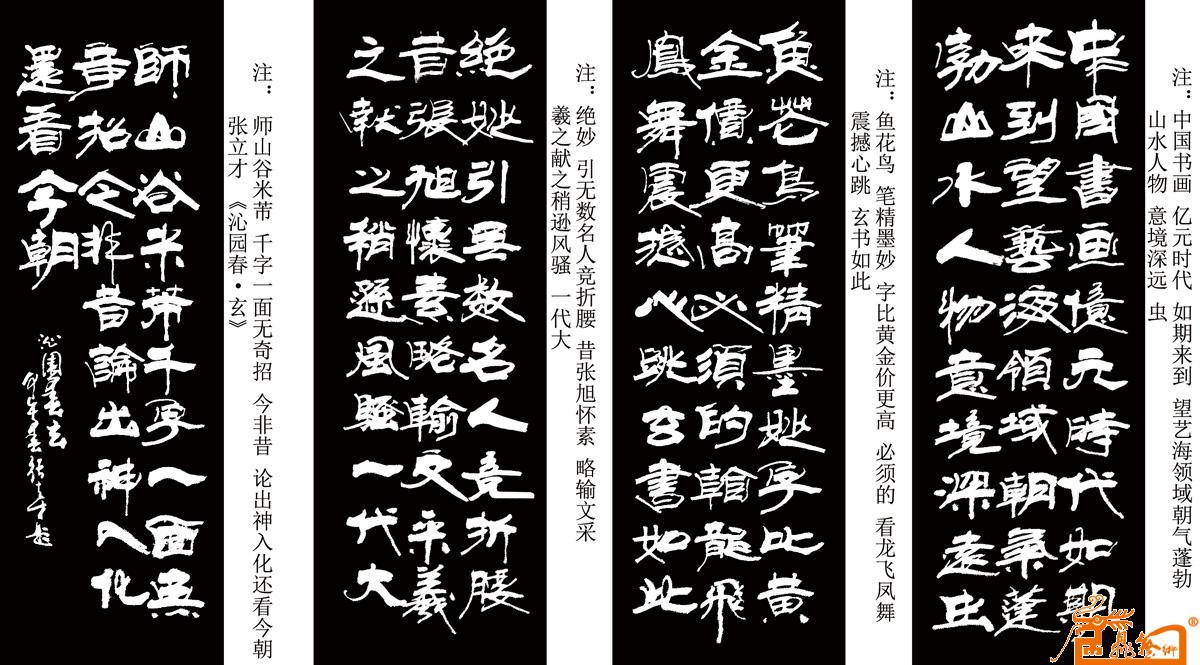 中國書画億元時代如期
来到望藝海領域朝氣蓬
勃山水人物意境深遠虫
注：中国书画 亿元时代 如期来到 望艺海领域朝气蓬勃
山水人物 意境深远 虫
魚花鳥筆精墨妙字比黄
金價更高必須的看龍飛
鳳舞震撼心跳玄書如此
注：鱼花鸟 笔精墨妙 字比黄金价更高 必须的 看龙飞凤舞
震撼心跳 玄书如此
絶妙引無数名人竞折腰
昔張旭懷素略輸文采羲
之献之稍遜風騷一代大
注：绝妙 引无数名人竞折腰 昔张旭怀素 略输文采
羲之献之稍逊风骚 一代大
師山谷米芾千字一面無
奇招今非昔論出神入化
還看今朝
沁園春玄
注：师山谷米芾 千字一面无奇招 今非昔 论出神入化还看今朝
张立才 《沁园春·玄》